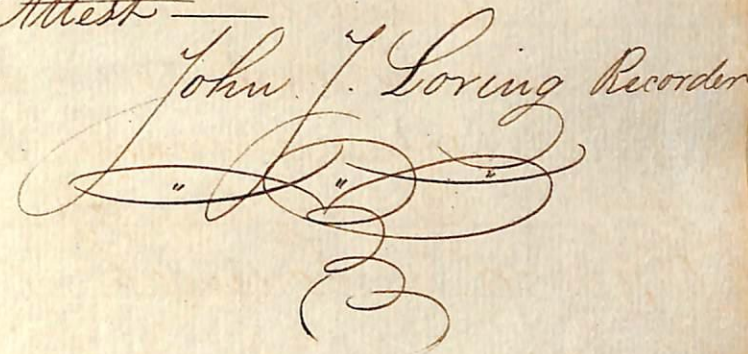 Attest —
John J. Loring Recorder